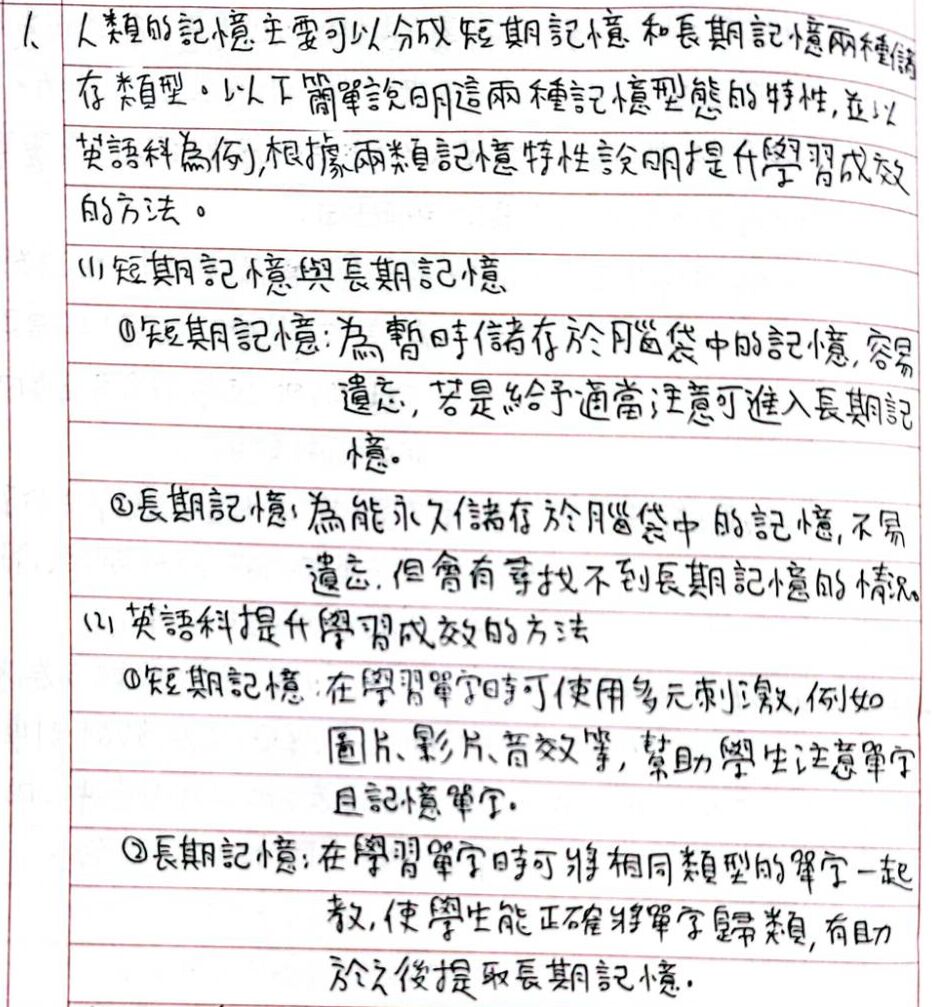 1、人類的記憶主要可以分成短期記憶和長期記憶兩種儲
存類型。以下簡單說明這兩種記憶型態的特性,並以
英語科為例,根據兩類記憶特性說明提升學習成效
的方法。
(1)短期記憶與長期記憶
①短期記憶:為暫時儲存於腦袋中的記憶,容易
遺忘,若是給予適當注意可進入長期記
憶。
②長期記憶:為能永久儲存於腦袋中的記憶,不易
遺忘,但會有尋找不到長期記憶的情況。
(2)英語科提升學習成效的方法
①短期記憶:在學習單字時可使用多元刺激,例如
圖片、影片、音效等,幫助學生注意單字
且記憶單字。
②長期記憶:在學習單字時可將相同類型的單字一起
教,使學生能正確將單字歸類,有助
於之後提取長期記憶。